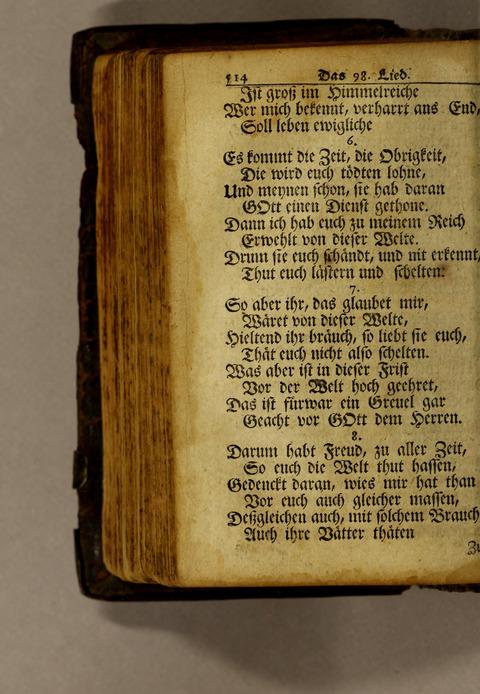 514 Das 98. Lied.
Ist groß im Himmelreiche
Wer mich bekennt, verharrt ans End,
Soll leben ewigliche
6.
Es kommt die Zeit, die Obrigkeit,
Die wird euch tödten lohne,
Und meynen schon, sie hab daran
GOtt einen Dienst gethone.
Dann ich hab euch zu meinem Reich
Erwehlt von dieser Welte.
Drum sie euch schändt, und nit erkennt,
Thut euch lästern und schelten.
7.
So aber ihr, das glaubet mir,
Wäret von dieser Welte,
Hieltend ihr bräuch, so liebt sie euch,
Thät euch nicht also schelten.
Was aber ist in dieser Frist
Vor der Welt hoch geehret,
Das ist fürwar ein Greuel gar
Geacht vor GOtt dem Herren.
8.
Darum habt Freud, zu aller Zeit,
So euch die Welt thut hassen,
Gedenckt daran, wies mir hat than
Vor euch auch gleicher massen,
Deßgleichen auch, mit solchem Brauch
Auch ihre Vätter thäten